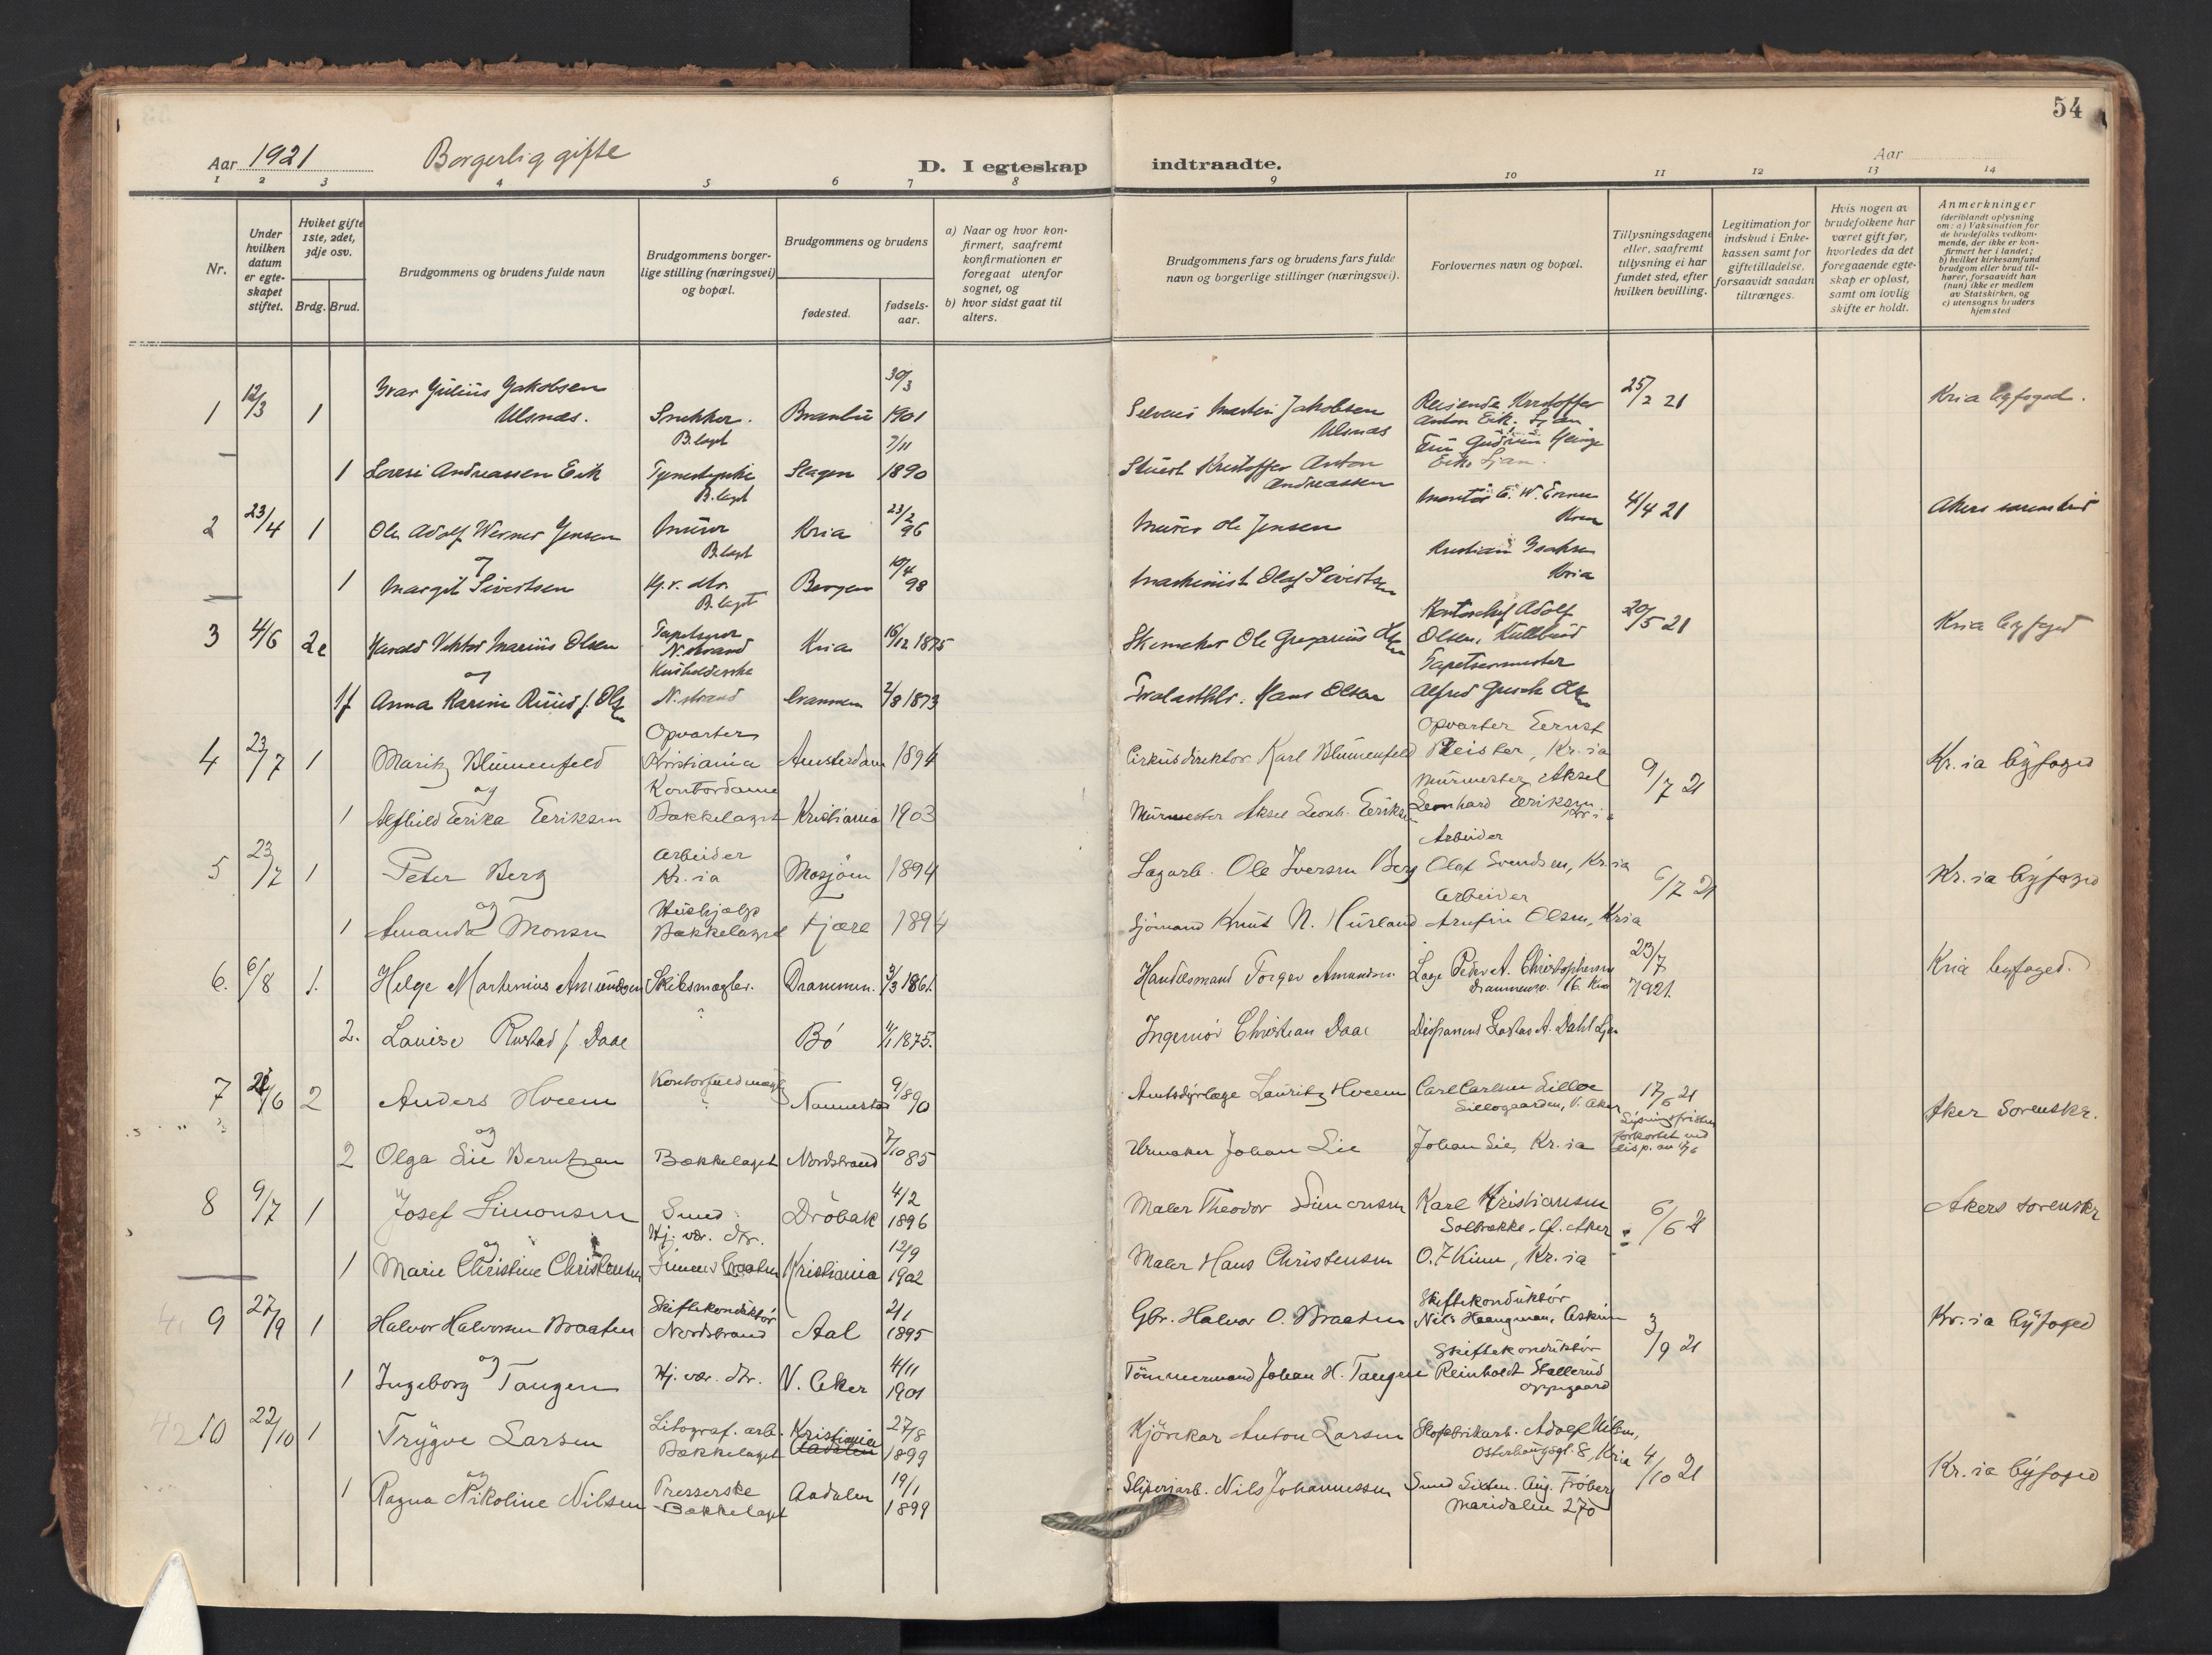 54
Aar 1921 Borgerlig gifte D. I egteskap indtraadte. Aar
1 2 3 4 5 6 7 8 9 10 11 12 13 14
Nr.
Under hvilken datum er egteskapet stiftet.
Hvilket gifte 1ste, 2det, 3dje osv.
Brdg. Brud.
Brudgommens og brudens fulde navn
Brudgommens borgerlige stilling (næringsvei) og bopæl.
Brudgommens og brudens
fødested.
fødselsaar.
a) Naar og hvor konfirmert, saafremt konfirmationen er foregaat utenfor sognet, og
b) hvor sidst gaat til alters.
Brudgommens fars og brudens fars fulde navn og borgerlige stillinger (næringsvei).
Forlovernes navn og bopæl.
Tillysningsdagene eller, saafremt tillysning ei har fundet sted, efter hvilken bevilling.
Legitimation for indskud i Enkekassen samt for giftetilladelse, forsaavidt saadan tiltrænges.
Hvis nogen av brudefolkene har været gift før, hvorledes da det foregaaende egteskap er opløst, samt om lovlig skifte er holdt.
Anmerkninger
(deriblandt oplysning om: a) Vaksination for de brudefolks vedkommende, der ikke er konfirmert her i landet; b) hvilket kirkesamfund brudgom eller brud tilhører, forsaavidt han (hun) ikke er medlem av Statskirken, og c) utensogns bruders hjemsted
1 12/3 1 Ivar Julius Jakobsen Ulsnæs. Snekker. B.laget 30/3 1901 Martin Jakobsen Ulsnæs Reisende Kristoffer Anton Eik. Ljan 25/2 21 Kria byfoged.
1 Andreassen Eik B.laget Slagen 7/11 1890 Kristoffer Anton Andreassen Gudrun Eik Ljan.
2 23/4 1 Ole Adolf Werner Jensen Murer B.laget Kria 23/2 96 Murer Ole Jensen 4/4 21 Akers
og
1 Margit Sivertsen Hj.v. dtr. B.laget Bergen 10/4 98 Maskinist Olaf Sivertsen Kristian Kria
3 4/6 2 Harald Viktor Marius Olsen N.strand Kria 16/12 1875 Skomaker Ole Olsen Adolf Olsen, 20/5 21 Kria byfoged
og
1 Anna Karine Ruud f. Olsen N.strand Drammen 2/8 1873 Hans Olsen Tapetserermester Alfred Olsen
4 23/7 1 Maritz Blumenfeld Opvarter Kristiania Amsterdam 1894 Cirkusdirektør Karl Blumenfeld Opvarter Ernst Pleister, Kr.ia 9/7 21 Kr.ia byfoged
og
1 Alfhild Erika Eriksen Kontordame Bækkelaget Kristiania 1903 Murmester Aksel Leonh. Eriksen Murmester Aksel Leonhard Eriksen, Kr.ia
5 23/7 1 Peter Berg Arbeider Kr.ia Mosjøen 1894 Sagarb. Ole Iversen Berg Arbeider Olaf Svendsen, Kr.ia 6/7 21 Kr.ia byfoged
og
1 Amanda Monsen Hushjælp Bækkelaget Fjære 1894 Sjømand Knut N. Arbeider Arnfin Olsen, Kria
6. 6/8 1. Helge Marthinius Amundsen Skibsmægler. Drammen. 3/3 1861. Handelsmand Torger Amundsen Læge Peder A. Christophersen Drammensv. 16 Kria 23/7 1921. Kria byfoged.
2. Louise Rustad f. Daae Bø 11/1 1875. Ingeniør Christian Daae Disponent Gustav A. Dahl Ljan
7 6 2 Anders Hveem Kontorfuldmægtig Nannestad 9/8 90 Amtsdyrlæge Lauritz Hveem Carl Carlsen Lilloe Lillogaarden, V. Aker 17/6 21 Aker Sorenskr.
og
2 Olga Lie Berntzen Bækkelaget Nordstrand 7/10 85 Urmaker Johan Lie Johan Lie, Kr.ia Lysningsfristen forkortet ved disp. av
8 9/7 1 Josef Simonsen Smed Drøbak 4/2 1896 Maler Theodor Simonsen Karl Kristiansen Solbakke, Ø. Aker 6/6 21 Akers sorenskr
og
1 Marie Christine Christensen Hj. vær. dtr. Kristiania 12/9 1902 Maler Hans Christensen O. F Kinn, Kr.ia
9 27/9 1 Halvor Halvorsen Braaten Skiftekonduktør Nordstrand Aal 2/1 1895 Gbr. Halvor O. Braaten Skiftekonduktør Nils Haugman, Askim 3/9 21 Kr.ia byfoged
og
1 Ingeborg Tangen Hj. vær. dtr. V. Aker 4/11 1901 Tømmermand Johan H. Tangen Skiftekonduktør Reinholdt Stallerud Oppegaard
10 22/10 1 Trygve Larsen Litograf. arb. Bækkelaget Kristiania Aadalen 27/8 1899 Kjørekar Anton Larsen Skofabrikarb. Adolf Nilsen, Osterhausgt. 8, Kria 4/10 21 Kr.ia byfoged
og
1 Ragna Nikoline Nilsen Presserske Bækkelaget Aadalen 19/1 1899 Sliperiarb. Nils Johannessen Smed Aug. Frøberg Maridalen 270